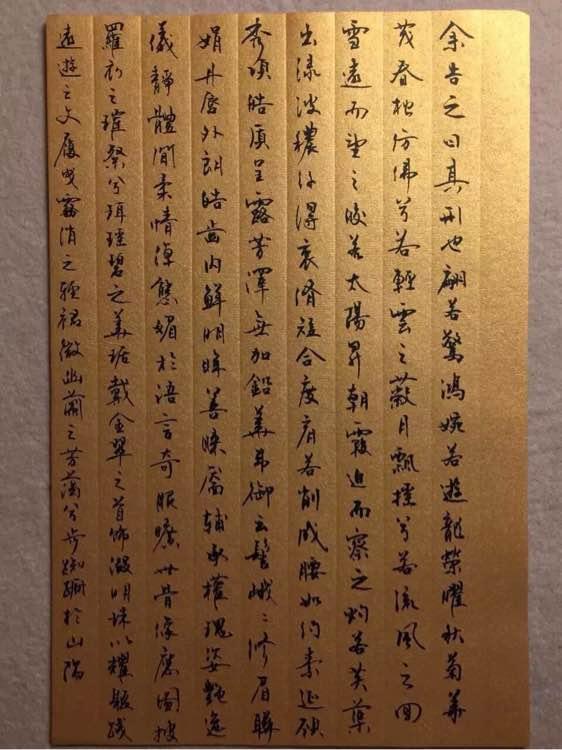 余告之曰其形也翩若驚鴻婉若遊龍榮曜秋菊華
茂春松仿佛兮若輕雲之蔽月飄搖兮若流風之回
雪遠而望之皎若太陽昇朝霞迫而察之灼若芙蕖
出淥波穠纤得衷脩短合度肩若削成腰如約素延頸
秀項皓質呈露芳澤無加鉛華弗御雲髻峨〻修眉聯
娟丹唇外朗皓齒內鮮明眸善睞靨輔承權瑰姿艷逸
儀靜體閒柔情綽態媚於語言奇服曠世骨像應圖披
羅衣之璀粲兮珥瑤碧之華琚戴金翠之首飾綴明珠以耀軀踐
遠遊之文履曳霧綃之輕裾微幽蘭之芳藹兮步踟躕於山隅